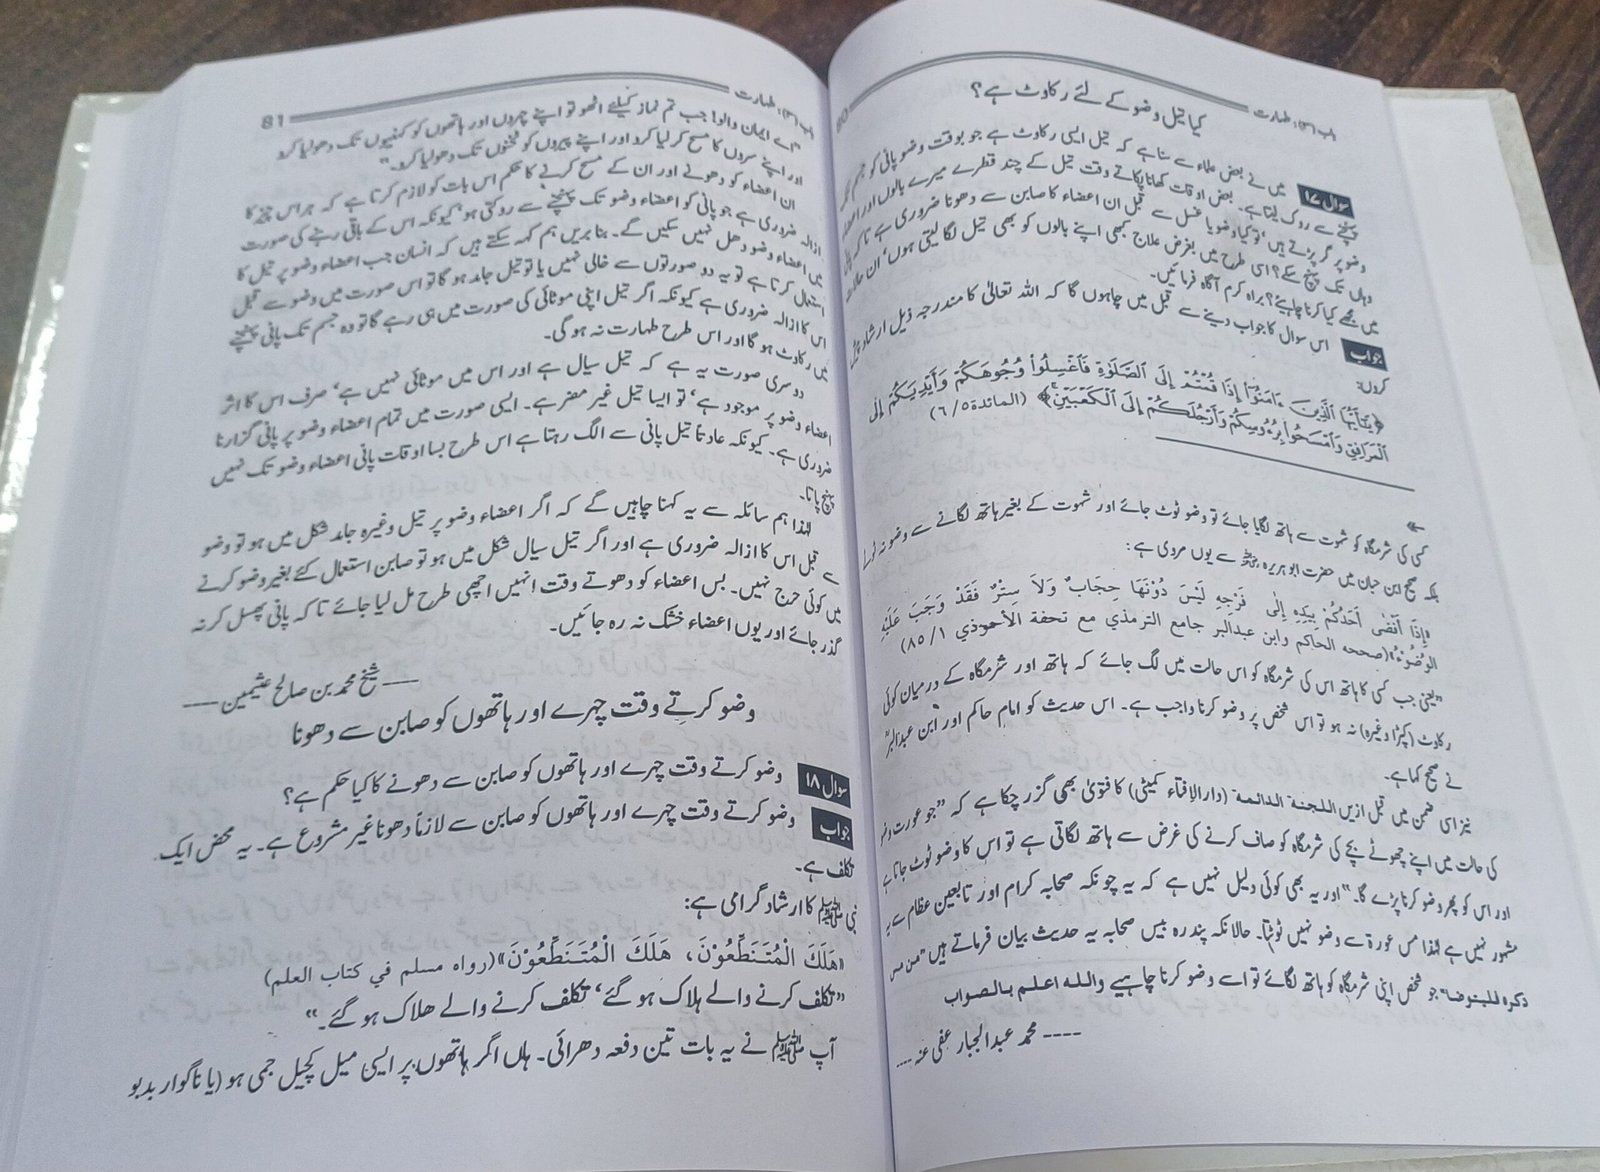 باب (۳): طہارت
80
کیا تیل وضو کے لئے رکاوٹ ہے؟
سوال ۱۷ میں نے بعض علماء سے سنا ہے کہ تیل ایسی رکاوٹ ہے جو بوقت وضو پانی کو جسم تک
پہنچنے سے روک لیتا ہے۔ بعض اوقات کھانا پکاتے وقت تیل کے چند قطرے میرے بالوں اور اعضاء
وضو پر گر پڑتے ہیں، تو کیا وضو یا غسل سے قبل ان اعضاء کا صابن سے دھونا ضروری ہے تاکہ پانی
وہاں تک پہنچ سکے؟ اسی طرح میں بغرض علاج کبھی اپنے بالوں کو بھی تیل لگا لیتی ہوں، ان حالات
میں مجھے کیا کرنا چاہیے؟ براہ کرم آگاہ فرمائیں۔
جواب اس سوال کا جواب دینے سے قبل میں چاہوں گا کہ اللہ تعالیٰ کا مندرجہ ذیل ارشاد پیش
کروں:
﴿يَٰٓأَيُّهَا ٱلَّذِينَ ءَامَنُوٓا۟ إِذَا قُمْتُمْ إِلَى ٱلصَّلَوٰةِ فَٱغْسِلُوا۟ وُجُوهَكُمْ وَأَيْدِيَكُمْ إِلَى
ٱلْمَرَافِقِ وَٱمْسَحُوا۟ بِرُءُوسِكُمْ وَأَرْجُلَكُمْ إِلَى ٱلْكَعْبَيْنِ﴾ (المائدة۵/ ۶)
کسی کی شرمگاہ کو شہوت سے ہاتھ لگایا جائے تو وضو ٹوٹ جائے اور شہوت کے بغیر ہاتھ لگانے سے وضو نہ ٹوٹے
بلکہ صحیح ابن حبان میں حضرت ابو ہریرہ رضی اللہ عنہ سے یوں مروی ہے:
«إِذَا أَفْضٰى أَحَدُكُمْ بِيَدِهِ إِلٰى فَرْجِهِ لَيْسَ دُوْنَهَا حِجَابٌ وَلاَ سِتْرٌ فَقَدْ وَجَبَ عَلَيْهِ
الوُضُوْءُ»(صححه الحاكم وابن عبدالبر جامع الترمذي مع تحفة الأحوذي ۱/ ۸۵)
"یعنی جب کسی کا ہاتھ اس کی شرمگاہ کو اس حالت میں لگ جائے کہ ہاتھ اور شرمگاہ کے درمیان کوئی
رکاوٹ (کپڑا وغیرہ) نہ ہو تو اس شخص پر وضو کرنا واجب ہے۔ اس حدیث کو امام حاکم اور ابن عبدالبرؒ
نے صحیح کہا ہے۔
نیز اسی ضمن میں قبل ازیں اللجنۃ الدائمۃ (دارالافتاء کمیٹی) کا فتویٰ بھی گزر چکا ہے کہ "جو عورت وضو
کی حالت میں اپنے چھوٹے بچے کی شرمگاہ کو صاف کرنے کی غرض سے ہاتھ لگاتی ہے تو اس کا وضو ٹوٹ جاتا ہے
اور اس کو پھر وضو کرنا پڑے گا۔" اور یہ بھی کوئی دلیل نہیں ہے کہ یہ چونکہ صحابہ کرام اور تابعین عظام سے
مشہور نہیں ہے لہٰذا مس عورۃ سے وضو نہیں ٹوٹتا۔ حالانکہ پندرہ بیس صحابہ یہ حدیث بیان فرماتے ہیں "من مس
ذکرہ فلیتوضا" جو شخص اپنی شرمگاہ کو ہاتھ لگائے تو اسے وضو کرنا چاہیے واللہ اعلم بالصواب
---- محمد عبدالجبار عفی عنہ ----
باب (۳): طہارت
81
"اے ایمان والو! جب تم نماز کیلئے اٹھو تو اپنے چہروں اور ہاتھوں کو کہنیوں تک دھو لیا کرو
اور اپنے سروں کا مسح کر لیا کرو اور اپنے پیروں کو ٹخنوں تک دھو لیا کرو۔"
ان اعضاء کو دھونے اور ان کے مسح کرنے کا حکم اس بات کو لازم کرتا ہے کہ ہر اس چیز کا
ازالہ ضروری ہے جو پانی کو اعضاء وضو تک پہنچنے سے روکتی ہو، کیونکہ اس کے باقی رہنے کی صورت
میں اعضاء وضو دھل نہیں سکیں گے۔ بنا بریں ہم کہہ سکتے ہیں کہ انسان جب اعضاء وضو پر تیل کا
استعمال کرتا ہے تو یہ دو صورتوں سے خالی نہیں یا تو تیل جامد ہو گا تو اس صورت میں وضو سے قبل
اس کا ازالہ ضروری ہے کیونکہ اگر تیل اپنی موٹائی کی صورت میں ہی رہے گا تو وہ جسم تک پانی پہنچنے
میں رکاوٹ ہو گا اور اس طرح طہارت نہ ہو گی۔
دوسری صورت یہ ہے کہ تیل سیال ہے اور اس میں موٹائی نہیں ہے، صرف اس کا اثر
اعضاء وضو پر موجود ہے، تو ایسا تیل غیر مضر ہے۔ ایسی صورت میں تمام اعضاء وضو پر پانی گزارنا
ضروری ہے۔ کیونکہ عادتاً تیل پانی سے الگ رہتا ہے اس طرح بسا اوقات پانی اعضاء وضو تک نہیں
پہنچ پاتا۔
لہٰذا ہم سائلہ سے یہ کہنا چاہیں گے کہ اگر اعضاء وضو پر تیل وغیرہ جامد شکل میں ہو تو وضو
سے قبل اس کا ازالہ ضروری ہے اور اگر تیل سیال شکل میں ہو تو صابن استعمال کئے بغیر وضو کرنے
میں کوئی حرج نہیں۔ بس اعضاء کو دھوتے وقت انہیں اچھی طرح مل لیا جائے تاکہ پانی پھسل کر نہ
گذر جائے اور یوں اعضاء خشک نہ رہ جائیں۔
---- شیخ محمد بن صالح عثیمین ----
وضو کرتے وقت چہرے اور ہاتھوں کو صابن سے دھونا
سوال ۱۸ وضو کرتے وقت چہرے اور ہاتھوں کو صابن سے دھونے کا کیا حکم ہے؟
جواب وضو کرتے وقت چہرے اور ہاتھوں کو صابن سے لازماً دھونا غیر مشروع ہے۔ یہ محض ایک
تکلف ہے۔
نبی ﷺ کا ارشاد گرامی ہے:
«هَلَكَ الْمُتَنَطِّعُوْنَ، هَلَكَ الْمُتَنَطِّعُوْنَ»(رواه مسلم في كتاب العلم)
"تکلف کرنے والے ہلاک ہو گئے، تکلف کرنے والے ھلاک ہو گئے۔"
آپ ﷺ نے یہ بات تین دفعہ دھرائی۔ ہاں اگر ہاتھوں پر ایسی میل کچیل جمی ہو (یا ناگوار بدبو